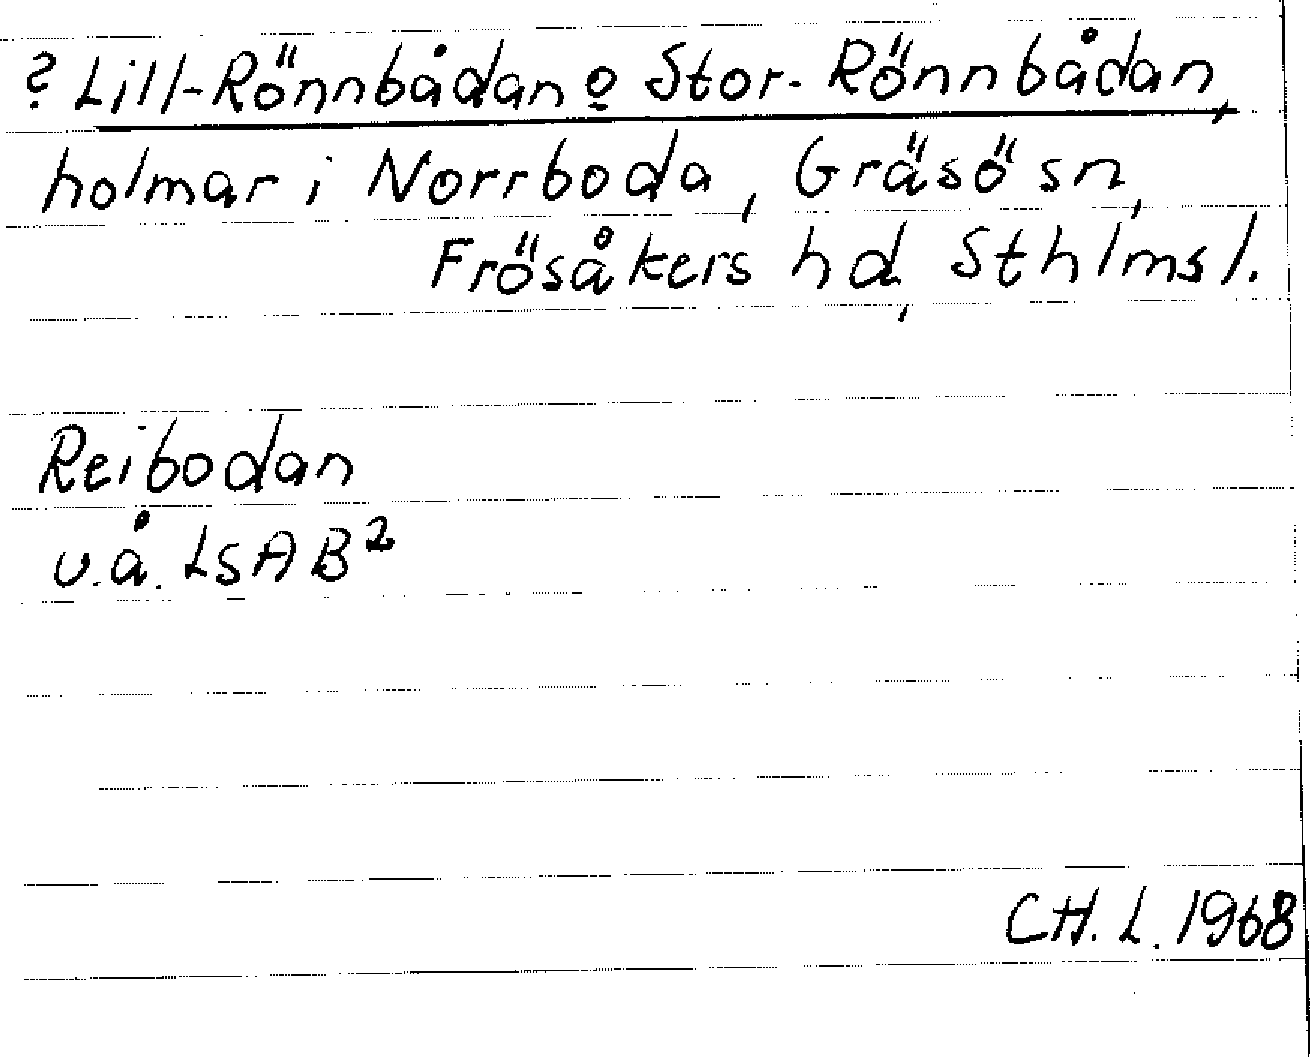 ? Lill-Rönnbådan o Stor-Rönnbådan,
holmar i Norrboda, Gräsö sn,
Frösåkers hd, Sthlms l.
Reibodan
u.å. LSAB²
CH. L. 1968